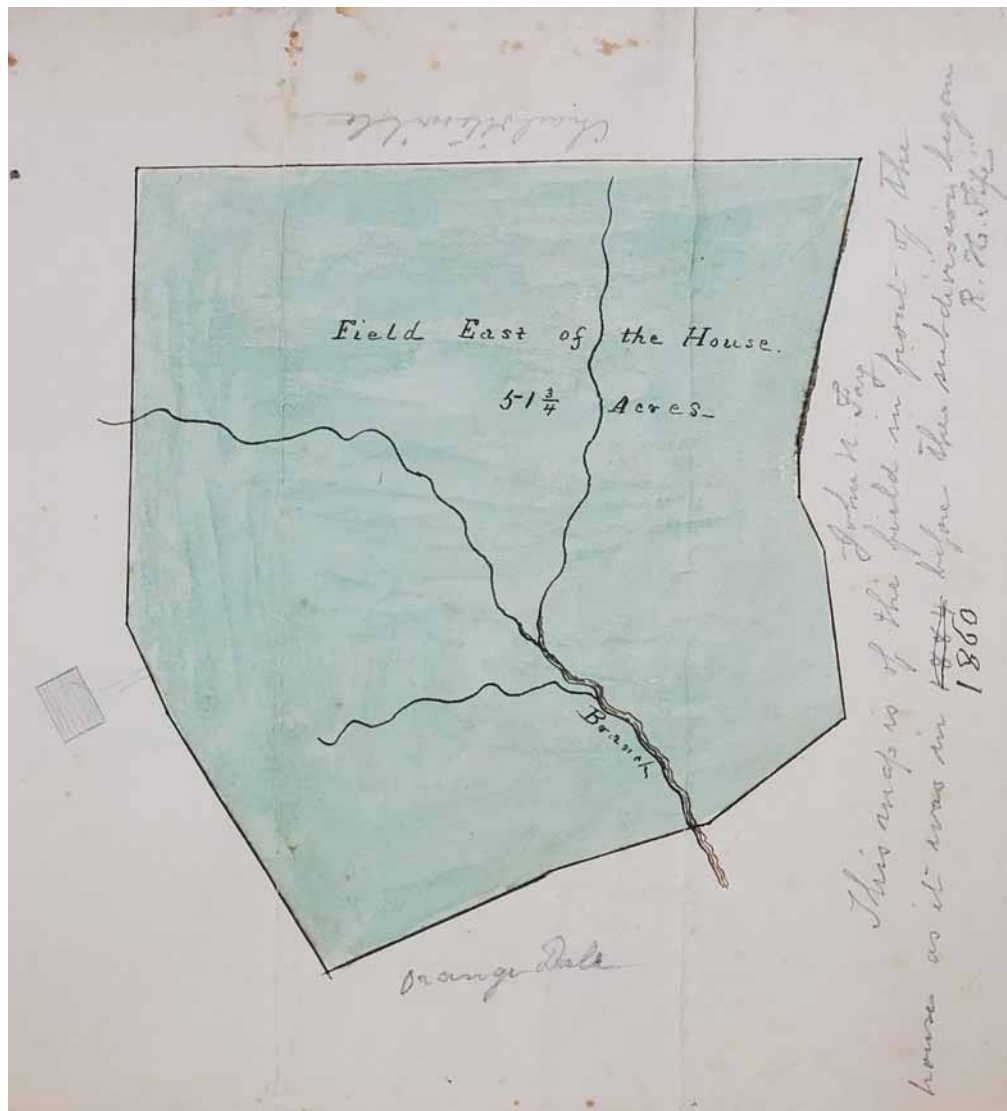 Charlottesville
Field East of the House.
51 3/4 Acres
Branch
Orange Dale
This map is of the field in front of the
house as it was in 1884 before the subdivision began
1860
R. H. Fife
John N.